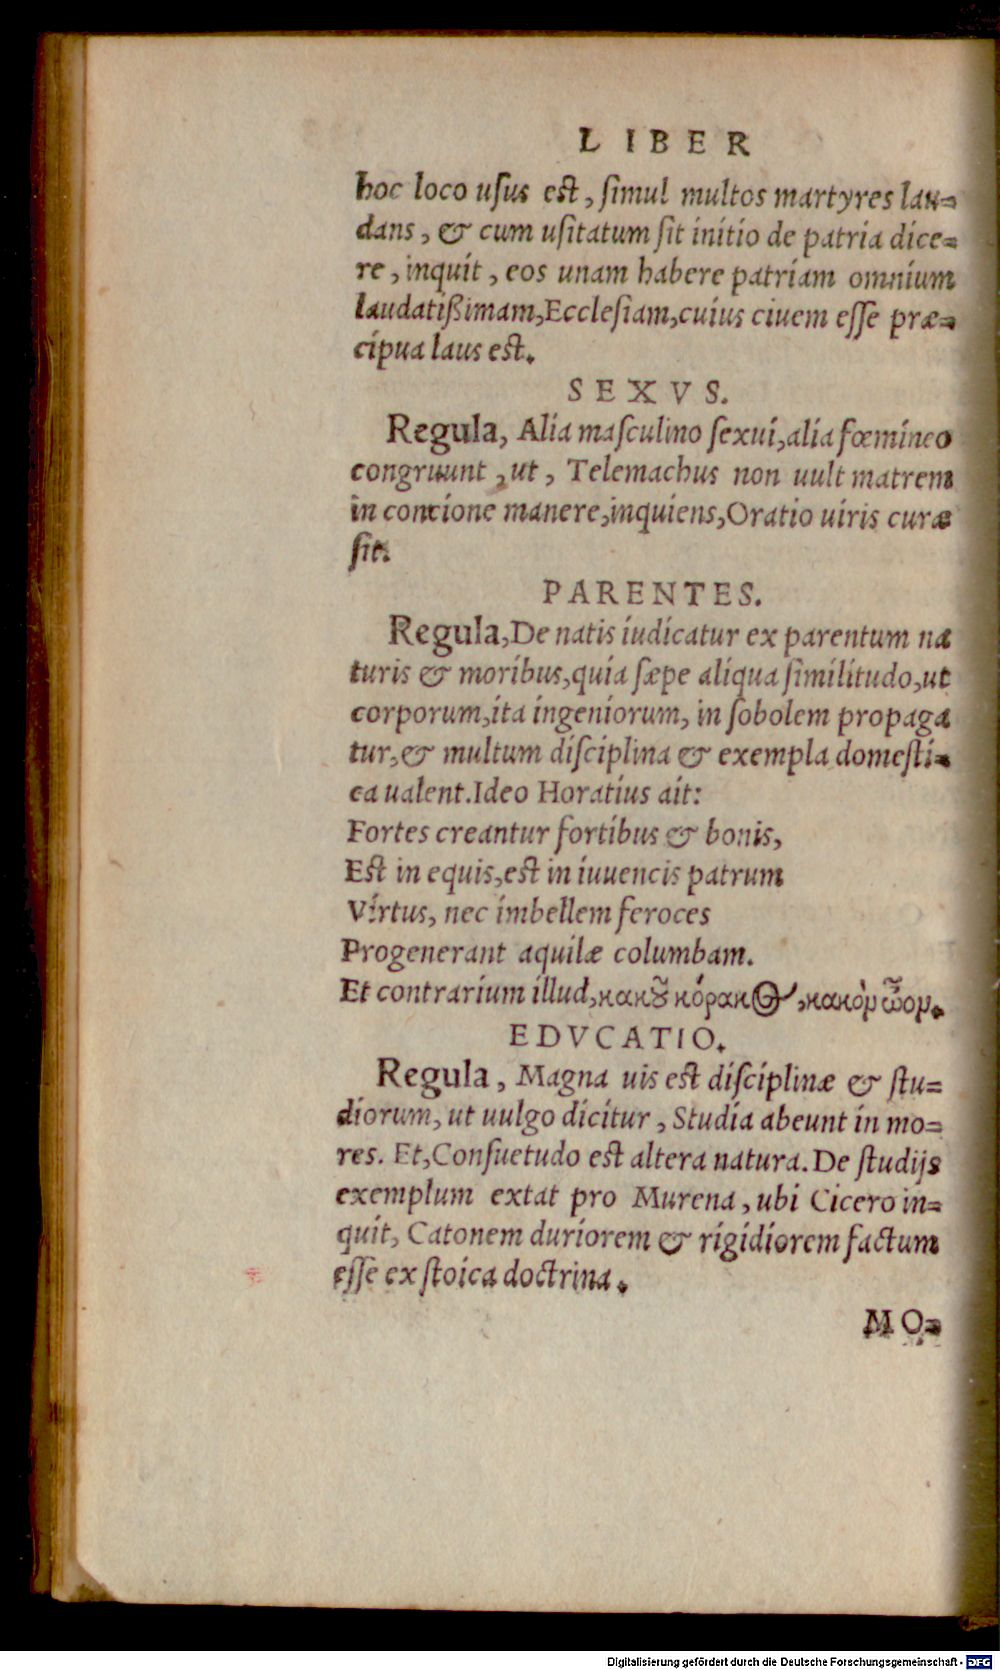 LIBER
hoc loco uſus eſt, ſimul multos martyres lau-
dans, & cum uſitatum ſit initio de patria dice-
re, inquit, eos unam habere patriam omnium
laudatißimam, Eccleſiam, cuius ciuem eſſe præ-
cipua laus eſt.
SEXVS.
Regula, Alia maſculino ſexui, alia fœmineo
congruunt, ut, Telemachus non uult matrem
in concione manere, inquiens, Oratio uiris curæ
ſit.
PARENTES.
Regula, De natis iudicatur ex parentum na
turis & moribus, quia ſæpe aliqua ſimilitudo, ut
corporum, ita ingeniorum, in ſobolem propaga
tur, & multum diſciplina & exempla domeſti-
ca ualent. Ideo Horatius ait:
Fortes creantur fortibus & bonis,
Eſt in equis, eſt in iuuencis patrum
Virtus, nec imbellem feroces
Progenerant aquilæ columbam.
Et contrarium illud, κακοῦ κόρακος, κακὸν ὦον.
EDVCATIO.
Regula, Magna uis eſt diſciplinæ & ſtu-
diorum, ut uulgo dicitur, Studia abeunt in mo-
res. Et, Conſuetudo eſt altera natura. De ſtudijs
exemplum extat pro Murena, ubi Cicero in-
quit, Catonem duriorem & rigidiorem factum
eſſe ex ſtoica doctrina.
MO-
Digitalisierung gefördert durch die Deutsche Forschungsgemeinschaft - DFG